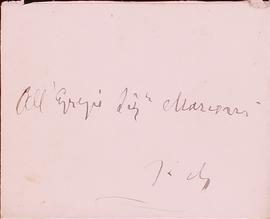 All'Egregio Sigr Marconi